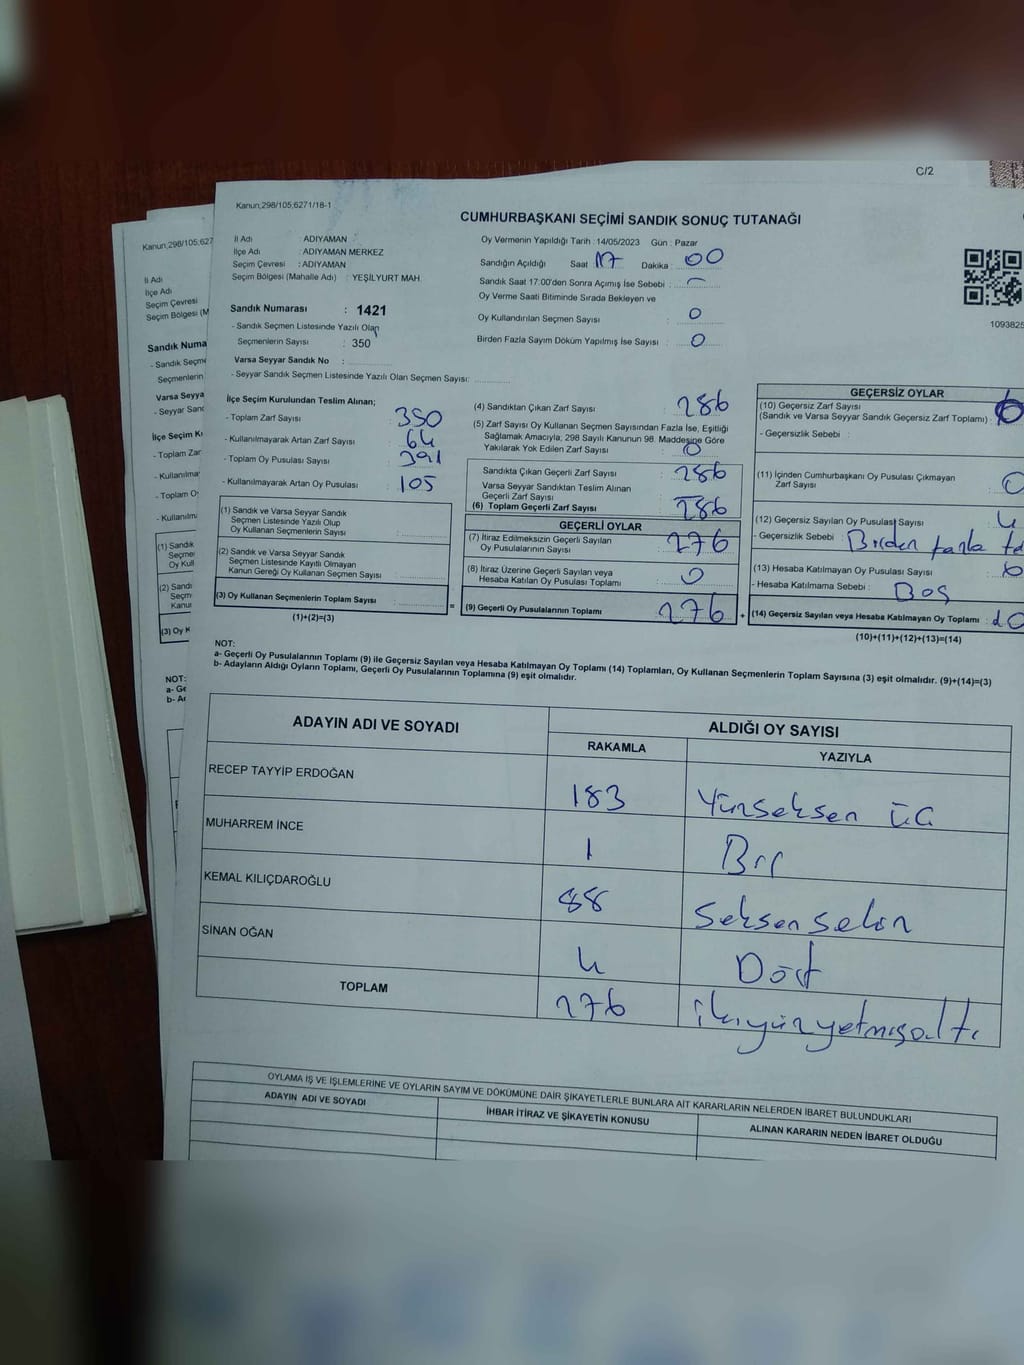 C/2
Kanun;298/105,6271/18-1
CUMHURBAŞKANI SEÇİMİ SANDIK SONUÇ TUTANAĞI
İl Adı : ADIYAMAN
İlçe Adı : ADIYAMAN MERKEZ
Seçim Çevresi : ADIYAMAN
Seçim Bölgesi (Mahalle Adı) : YEŞİLYURT MAH.
Sandık Numarası : 1421
- Sandık Seçmen Listesinde Yazılı Olan
Seçmenlerin Sayısı : 350
Varsa Seyyar Sandık No :
- Seyyar Sandık Seçmen Listesinde Yazılı Olan Seçmen Sayısı:
Oy Vermenin Yapıldığı Tarih : 14/05/2023 Gün : Pazar
Sandığın Açıldığı Saat 17 Dakika : 00
Sandık Saat 17:00'den Sonra Açımış İse Sebebi : -
Oy Verme Saati Bitiminde Sırada Bekleyen ve
Oy Kullandırılan Seçmen Sayısı : 0
Birden Fazla Sayım Döküm Yapılmış İse Sayısı : 0
109382
İlçe Seçim Kurulundan Teslim Alınan;
- Toplam Zarf Sayısı : 350
- Kullanılmayarak Artan Zarf Sayısı : 64
- Toplam Oy Pusulası Sayısı : 391
- Kullanılmayarak Artan Oy Pusulası : 105
(1) Sandık ve Varsa Seyyar Sandık
Seçmen Listesinde Yazılı Olup
Oy Kullanan Seçmenlerin Sayısı :
(2) Sandık ve Varsa Seyyar Sandık
Seçmen Listesinde Kayıtlı Olmayan
Kanun Gereği Oy Kullanan Seçmen Sayısı :
(3) Oy Kullanan Seçmenlerin Toplam Sayısı :
(1)+(2)=(3)
(4) Sandıktan Çıkan Zarf Sayısı : 286
(5) Zarf Sayısı Oy Kullanan Seçmen Sayısından Fazla İse, Eşitliği
Sağlamak Amacıyla, 298 Sayılı Kanunun 98. Maddesine Göre
Yakılarak Yok Edilen Zarf Sayısı : 0
Sandıkta Çıkan Geçerli Zarf Sayısı : 286
Varsa Seyyar Sandıktan Teslim Alınan
Geçerli Zarf Sayısı :
(6) Toplam Geçerli Zarf Sayısı : 286
GEÇERLİ OYLAR
(7) İtiraz Edilmeksizin Geçerli Sayılan
Oy Pusulalarının Sayısı : 276
(8) İtiraz Üzerine Geçerli Sayılan veya
Hesaba Katılan Oy Pusulası Toplamı : 0
= (9) Geçerli Oy Pusulalarının Toplamı : 276 +
GEÇERSİZ OYLAR
(10) Geçersiz Zarf Sayısı
(Sandık ve Varsa Seyyar Sandık Geçersiz Zarf Toplamı) :
- Geçersizlik Sebebi :
(11) İçinden Cumhurbaşkanı Oy Pusulası Çıkmayan
Zarf Sayısı : 0
(12) Geçersiz Sayılan Oy Pusulası Sayısı : 4
- Geçersizlik Sebebi : Birden fazla
(13) Hesaba Katılmayan Oy Pusulası Sayısı : 6
- Hesaba Katılmama Sebebi : Boş
(14) Geçersiz Sayılan veya Hesaba Katılmayan Oy Toplamı :
(10)+(11)+(12)+(13)=(14)
NOT:
a- Geçerli Oy Pusulalarının Toplamı (9) ile Geçersiz Sayılan veya Hesaba Katılmayan Oy Toplamı (14) Toplamları, Oy Kullanan Seçmenlerin Toplam Sayısına (3) eşit olmalıdır. (9)+(14)=(3)
b- Adayların Aldığı Oyların Toplamı, Geçerli Oy Pusulalarının Toplamına (9) eşit olmalıdır.
ADAYIN ADI VE SOYADI ALDIĞI OY SAYISI
RAKAMLA YAZIYLA
RECEP TAYYİP ERDOĞAN 183 Yüzseksen üç
MUHARREM İNCE 1 Bir
KEMAL KILIÇDAROĞLU 88 Seksen sekiz
SİNAN OĞAN 4 Dört
TOPLAM 276 ikiyüzyetmişaltı
OYLAMA İŞ VE İŞLEMLERİNE VE OYLARIN SAYIM VE DÖKÜMÜNE DAİR ŞİKAYETLERLE BUNLARA AİT KARARLARIN NELERDEN İBARET BULUNDUKLARI
ADAYIN ADI VE SOYADI İHBAR İTİRAZ VE ŞİKAYETİN KONUSU ALINAN KARARIN NEDEN İBARET OLDUĞU